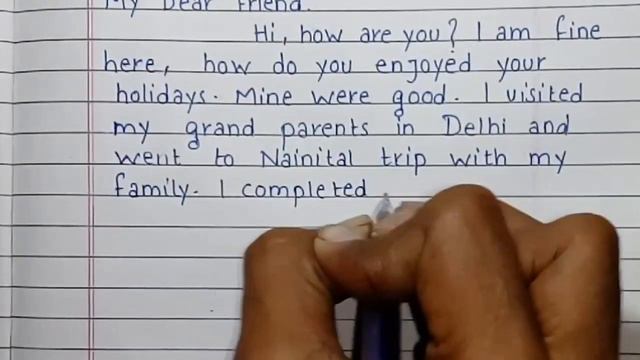 My Dear Friend.
Hi, how are you? I am fine
here, how do you enjoyed your
holidays. Mine were good. I visited
my grand parents in Delhi and
went to Nainital trip with my
family. I completed